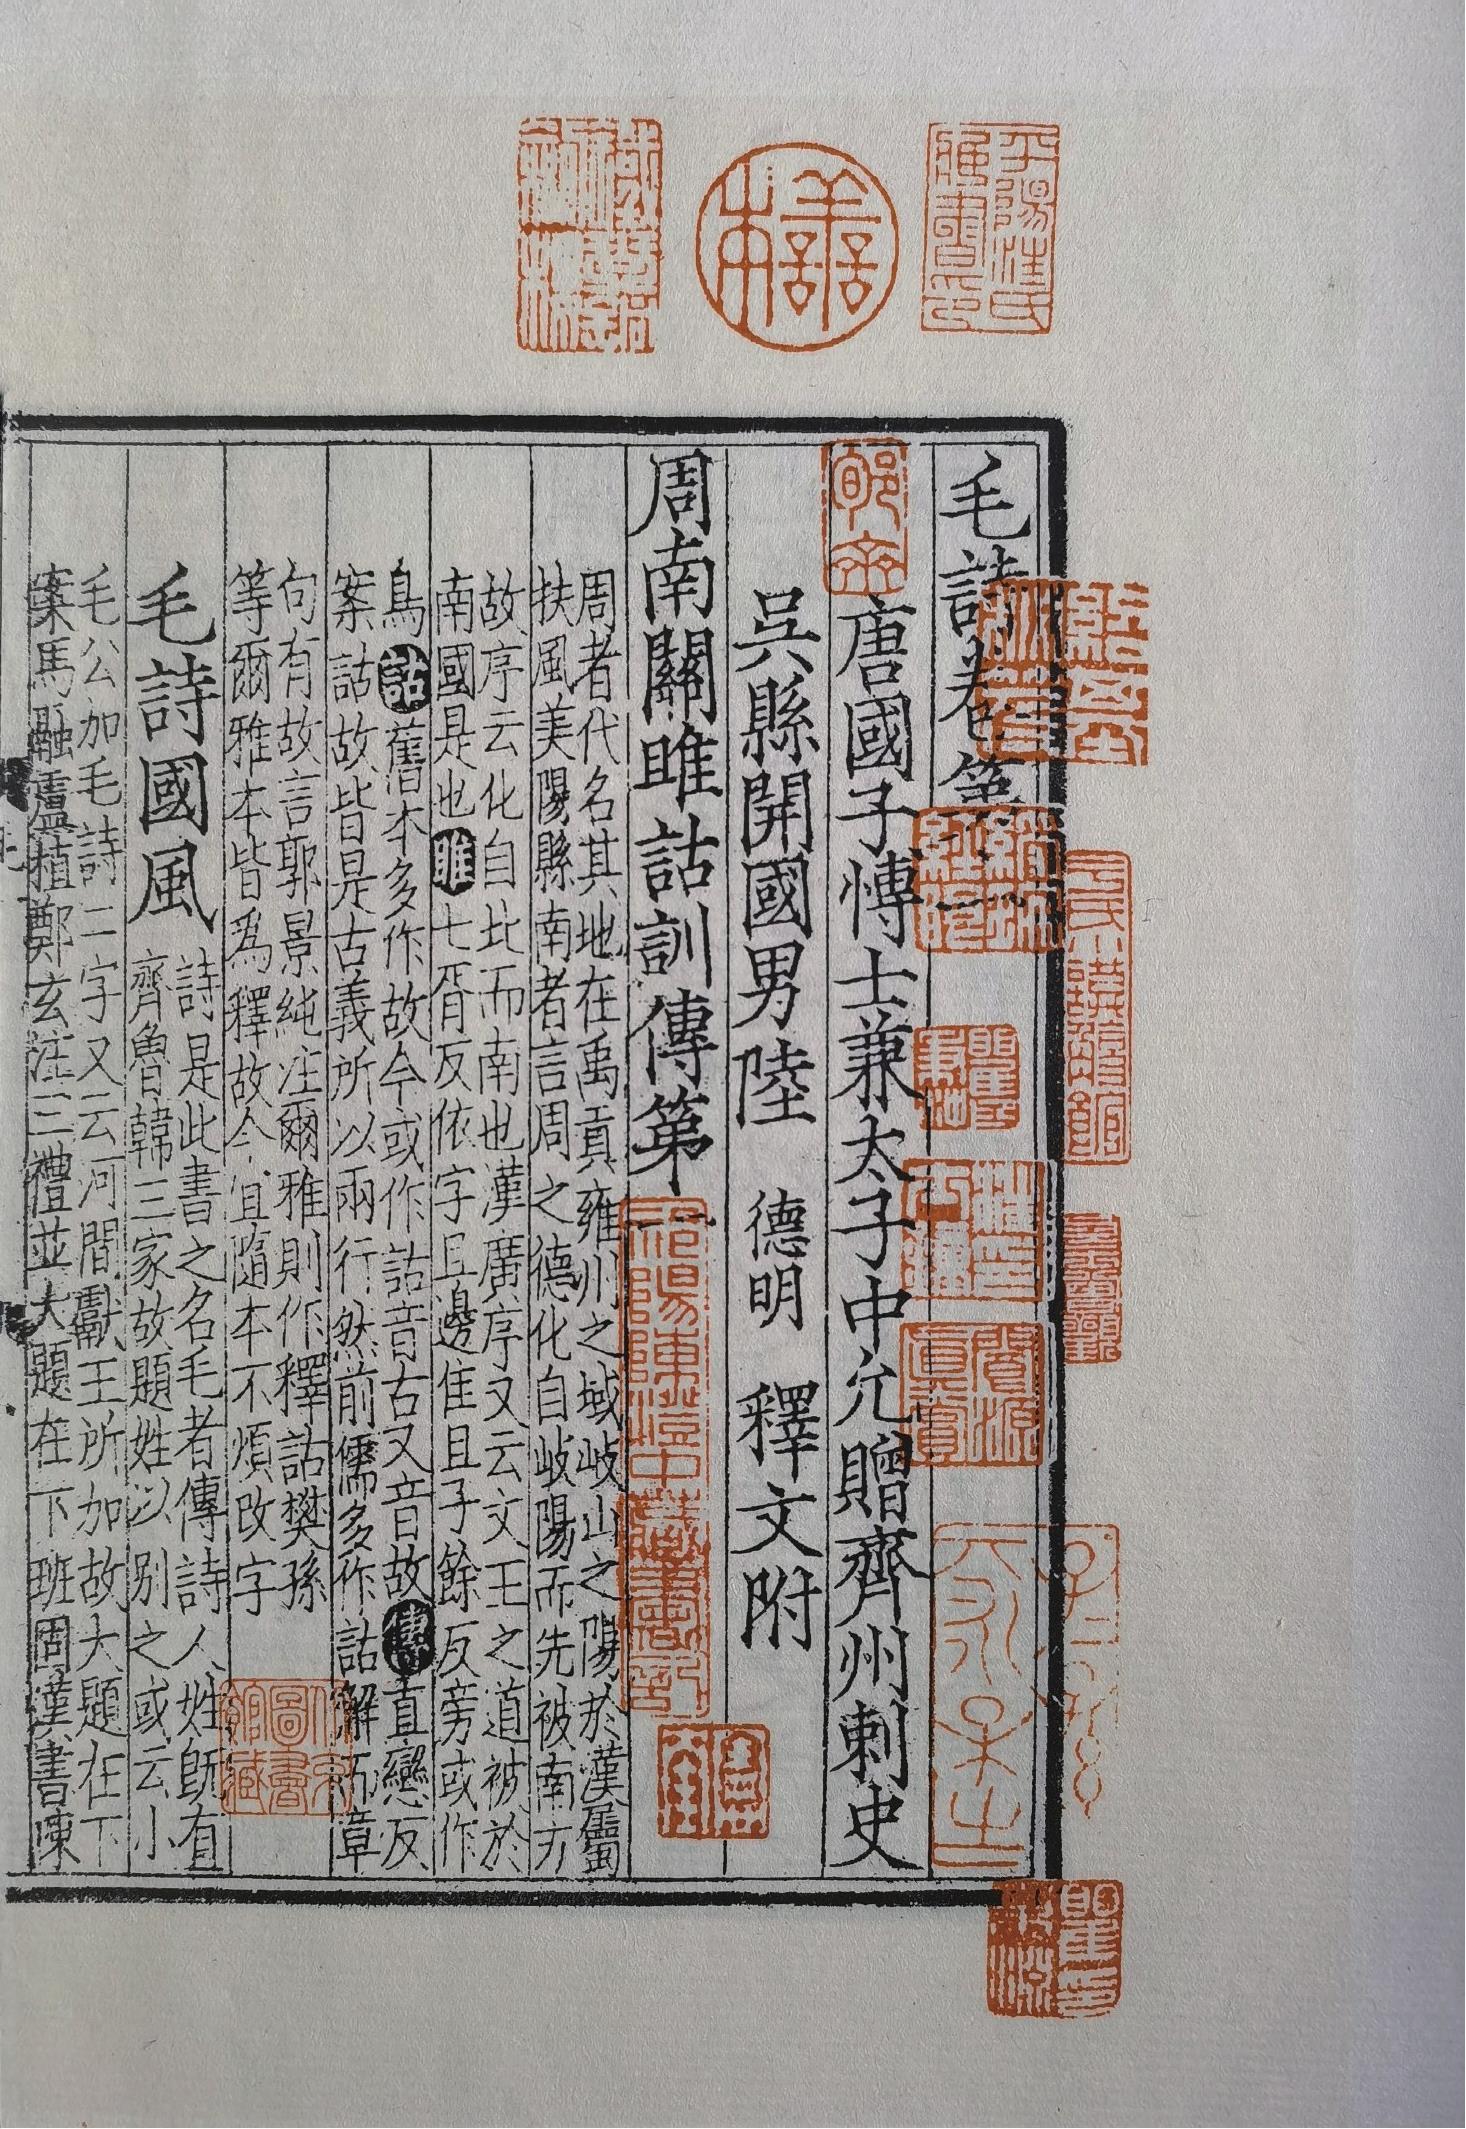 毛詩卷第一
唐國子博士兼太子中允贈齊州刺史
吳縣開國男陸 德明 釋文附
周南關雎詁訓傳第一
周者代名其地在禹貢雍州之域岐山之陽於漢屬
扶風美陽縣南者言周之德化自岐陽而先被南方
故序云化自北而南也漢廣序又云文王之道被於
南國是也雎七胥反依字且邊隹且子餘反旁或作
鳥詁舊本多作故今或作詁音古又音故傳直戀反
案詁故皆是古義所以兩行然前儒多作詁解而章
句有故言郭景純注爾雅則作釋詁樊孫
等爾雅本皆為釋故今宜隨本不煩改字
毛詩國風
詩是此書之名毛者傳詩人姓既有
齊魯韓三家故題姓以別之或云小
毛公加毛詩二字又云河間獻王所加故大題在下
案馬融盧植鄭玄注三禮並大題在下班固漢書陳
善本
平陽汪氏藏書印
祁陽陳澄中藏書記
北京圖書館藏